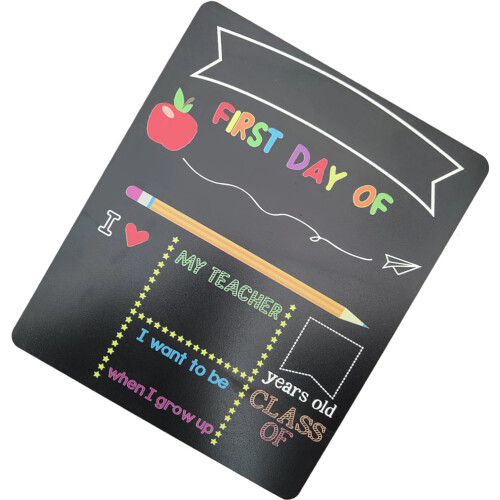 FIRST DAY OF
I
MY TEACHER
I want to be
when I grow up
years old
CLASS
OF